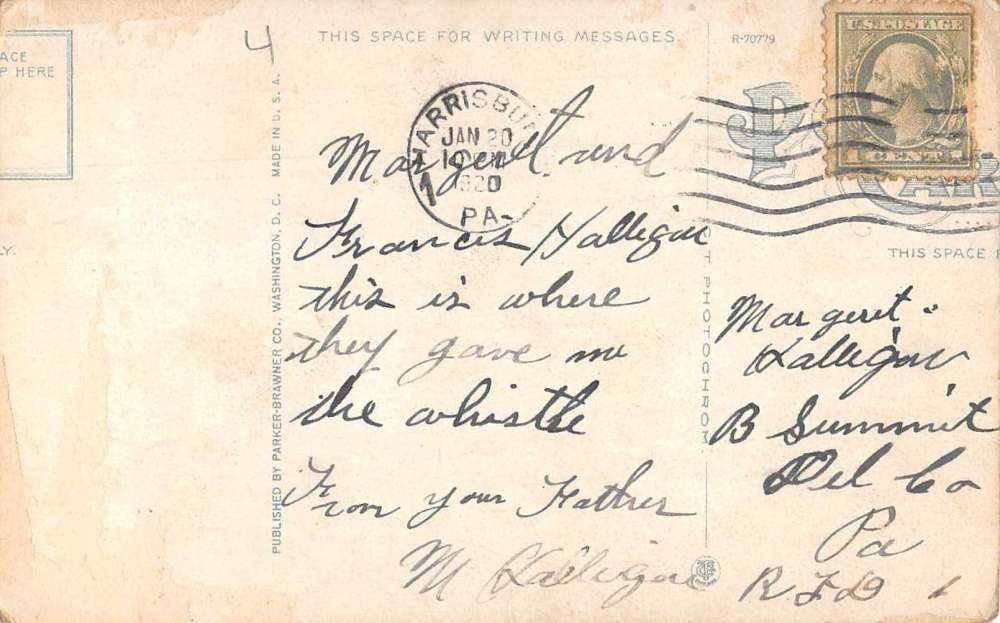 ACE
P HERE
LY.
4
THIS SPACE FOR WRITING MESSAGES.
R-70779
U.S. POSTAGE
1 CENT 1
HARRISBU
JAN 20
PM
1920
PA-
1
PUBLISHED BY PARKER-BRAWNER CO., WASHINGTON, D. C. MADE IN U. S. A.
Margeret and
Francis Halligan
this is where
they gave me
the whistle
From your Father
M Halligan
T PHOTOCHROM
PO
CAR
THIS SPACE F
Margeret
Halligan
B Summit
Del Co
Pa
R. F. D 1